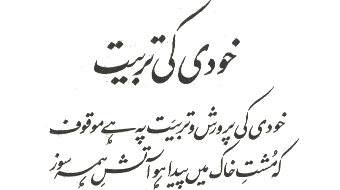 خودی کی تربیت
خودی کی پرورش و تربیت پہ ہے موقوف
کہ مُشتِ خاک میں پیدا ہو آتشِ ہمہ سوز